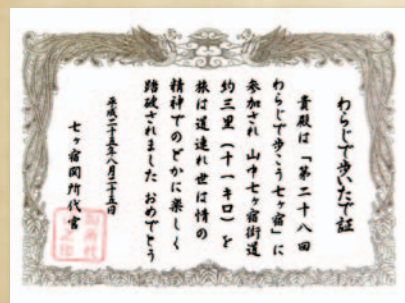 わらじで歩いたで証
貴殿は「第二十八回
わらじで歩こう七ヶ宿」に
参加され 山中七ヶ宿街道
約三里（十一キロ）を
旅は道連れ世は情の
精神でのどかに楽しく
踏破されました おめでとう
平成二十五年八月二十五日
七ヶ宿関所代官